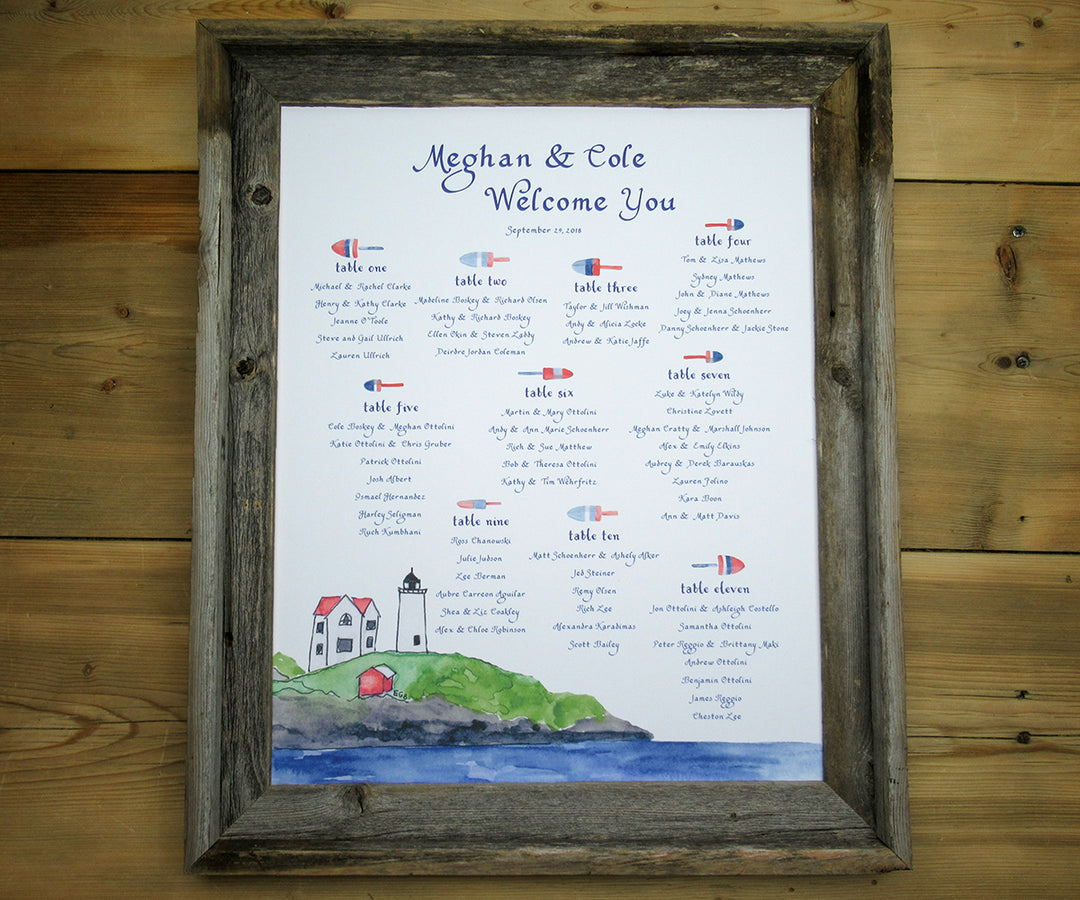 Meghan & Cole
Welcome You
September 29, 2018
table one
Michael & Rachel Clarke
Henry & Kathy Clarke
Jeanne O'Toole
Steve and Gail Ullrich
Lauren Ullrich
table two
Madeline Boskey & Richard Olsen
Kathy & Richard Boskey
Ellen Okin & Steven Laddy
Deirdre Jordan Coleman
table three
Taylor & Jill Wishman
Andy & Alicia Locke
Andrew & Katie Jaffe
table four
Tom & Lisa Mathews
Sydney Mathews
John & Diane Mathews
Joey & Jenna Schoenherr
Danny Schoenherr & Jackie Stone
table five
Cole Boskey & Meghan Ottolini
Katie Ottolini & Chris Gruber
Patrick Ottolini
Josh Albert
Ismael Hernandez
Harley Seligman
Ruch Kumbhani
table six
Martin & Mary Ottolini
Andy & Ann Marie Schoenherr
Rich & Sue Matthew
Bob & Theresa Ottolini
Kathy & Tim Wehrfritz
table seven
Luke & Katelyn Wildy
Christine Lovett
Meghan Cratty & Marshall Johnson
Alex & Emily Elkins
Audrey & Derek Barauskas
Lauren Jolino
Kara Boon
Ann & Matt Davis
table nine
Ross Chanowski
Julie Judson
Lee Berman
Aubre Carreon Aguilar
Shea & Liz Coakley
Alex & Chloe Robinson
table ten
Matt Schoenherr & Ashely Alker
Jed Steiner
Remy Olsen
Rich Lee
Alexandra Karadimas
Scott Bailey
table eleven
Jon Ottolini & Ashleigh Costello
Samantha Ottolini
Peter Reggio & Brittany Maki
Andrew Ottolini
Benjamin Ottolini
James Reggio
Cheston Lee
EGB